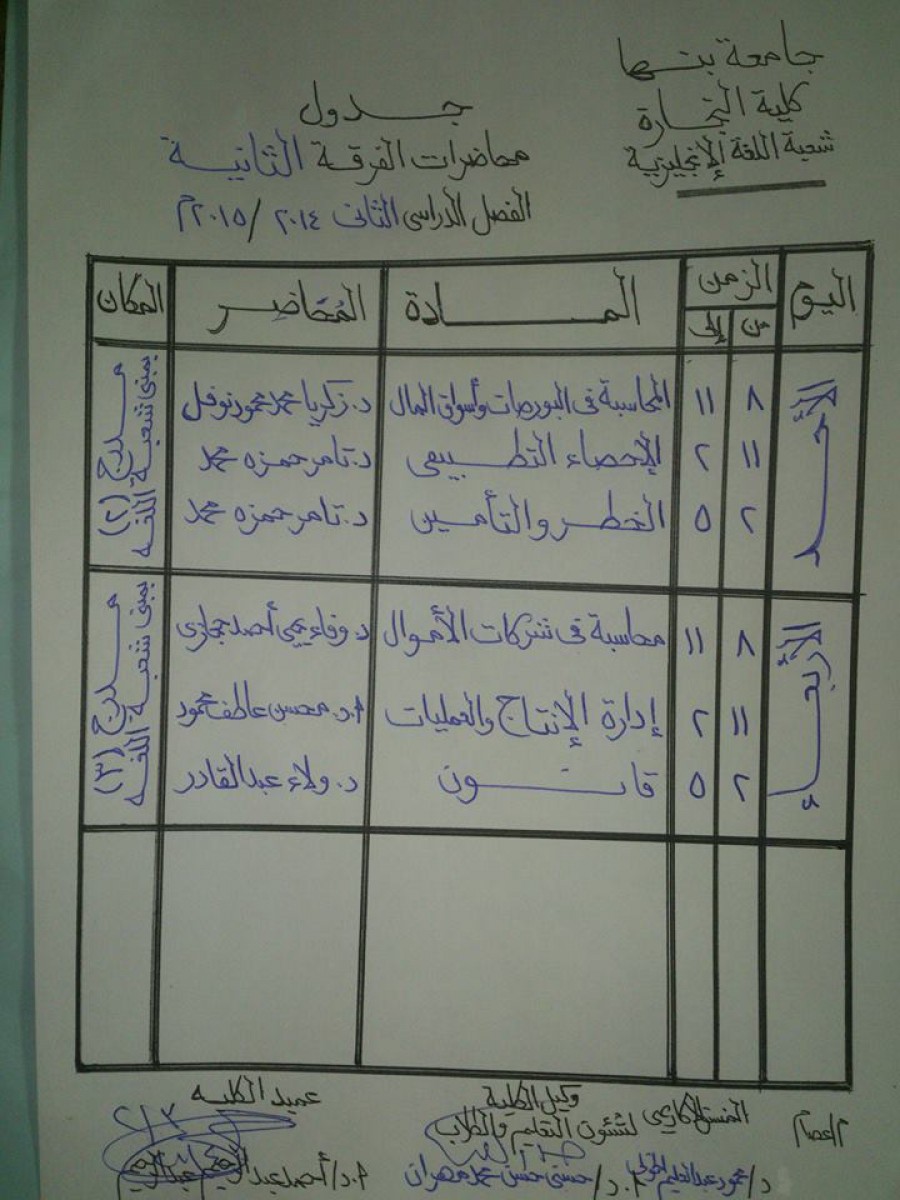 جامعة بنها
كلية التجارة
شعبة اللغة الإنجليزية
جدول
محاضرات الفرقة الثانية
الفصل الدراسى الثانى ٢٠١٤ / ٢٠١٥م
اليوم الزمن المادة المُحَاضِر المكان
من إلى
الأحد
٨ ١١ المحاسبة فى البورصات وأسواق المال د. زكريا محمد محمود نوفل
١١ ٢ الإحصاء التطبيقى د. تامر حمزه محمد
٢ ٥ الخطر والتأمين د. تامر حمزه محمد
مدرج (٢)
بمبنى شعبة اللغه
الأربعاء
٨ ١١ محاسبة فى شركات الأموال د. وفاء يحيى أحمد حجازى
١١ ٢ إدارة الإنتاج والعمليات أ.د. محسن عاطف محمود
٢ ٥ قانون د. ولاء عبدالقادر
مدرج (٣)
بمبنى شعبة اللغه
م/عصام
المنسق الإدارى
وكيل الكلية
لشئون التعليم والطلاب
عميد الكليه
أ.د/ حسنى حسن محمد مهران
أ.د/ أحمد عبدالرحيم